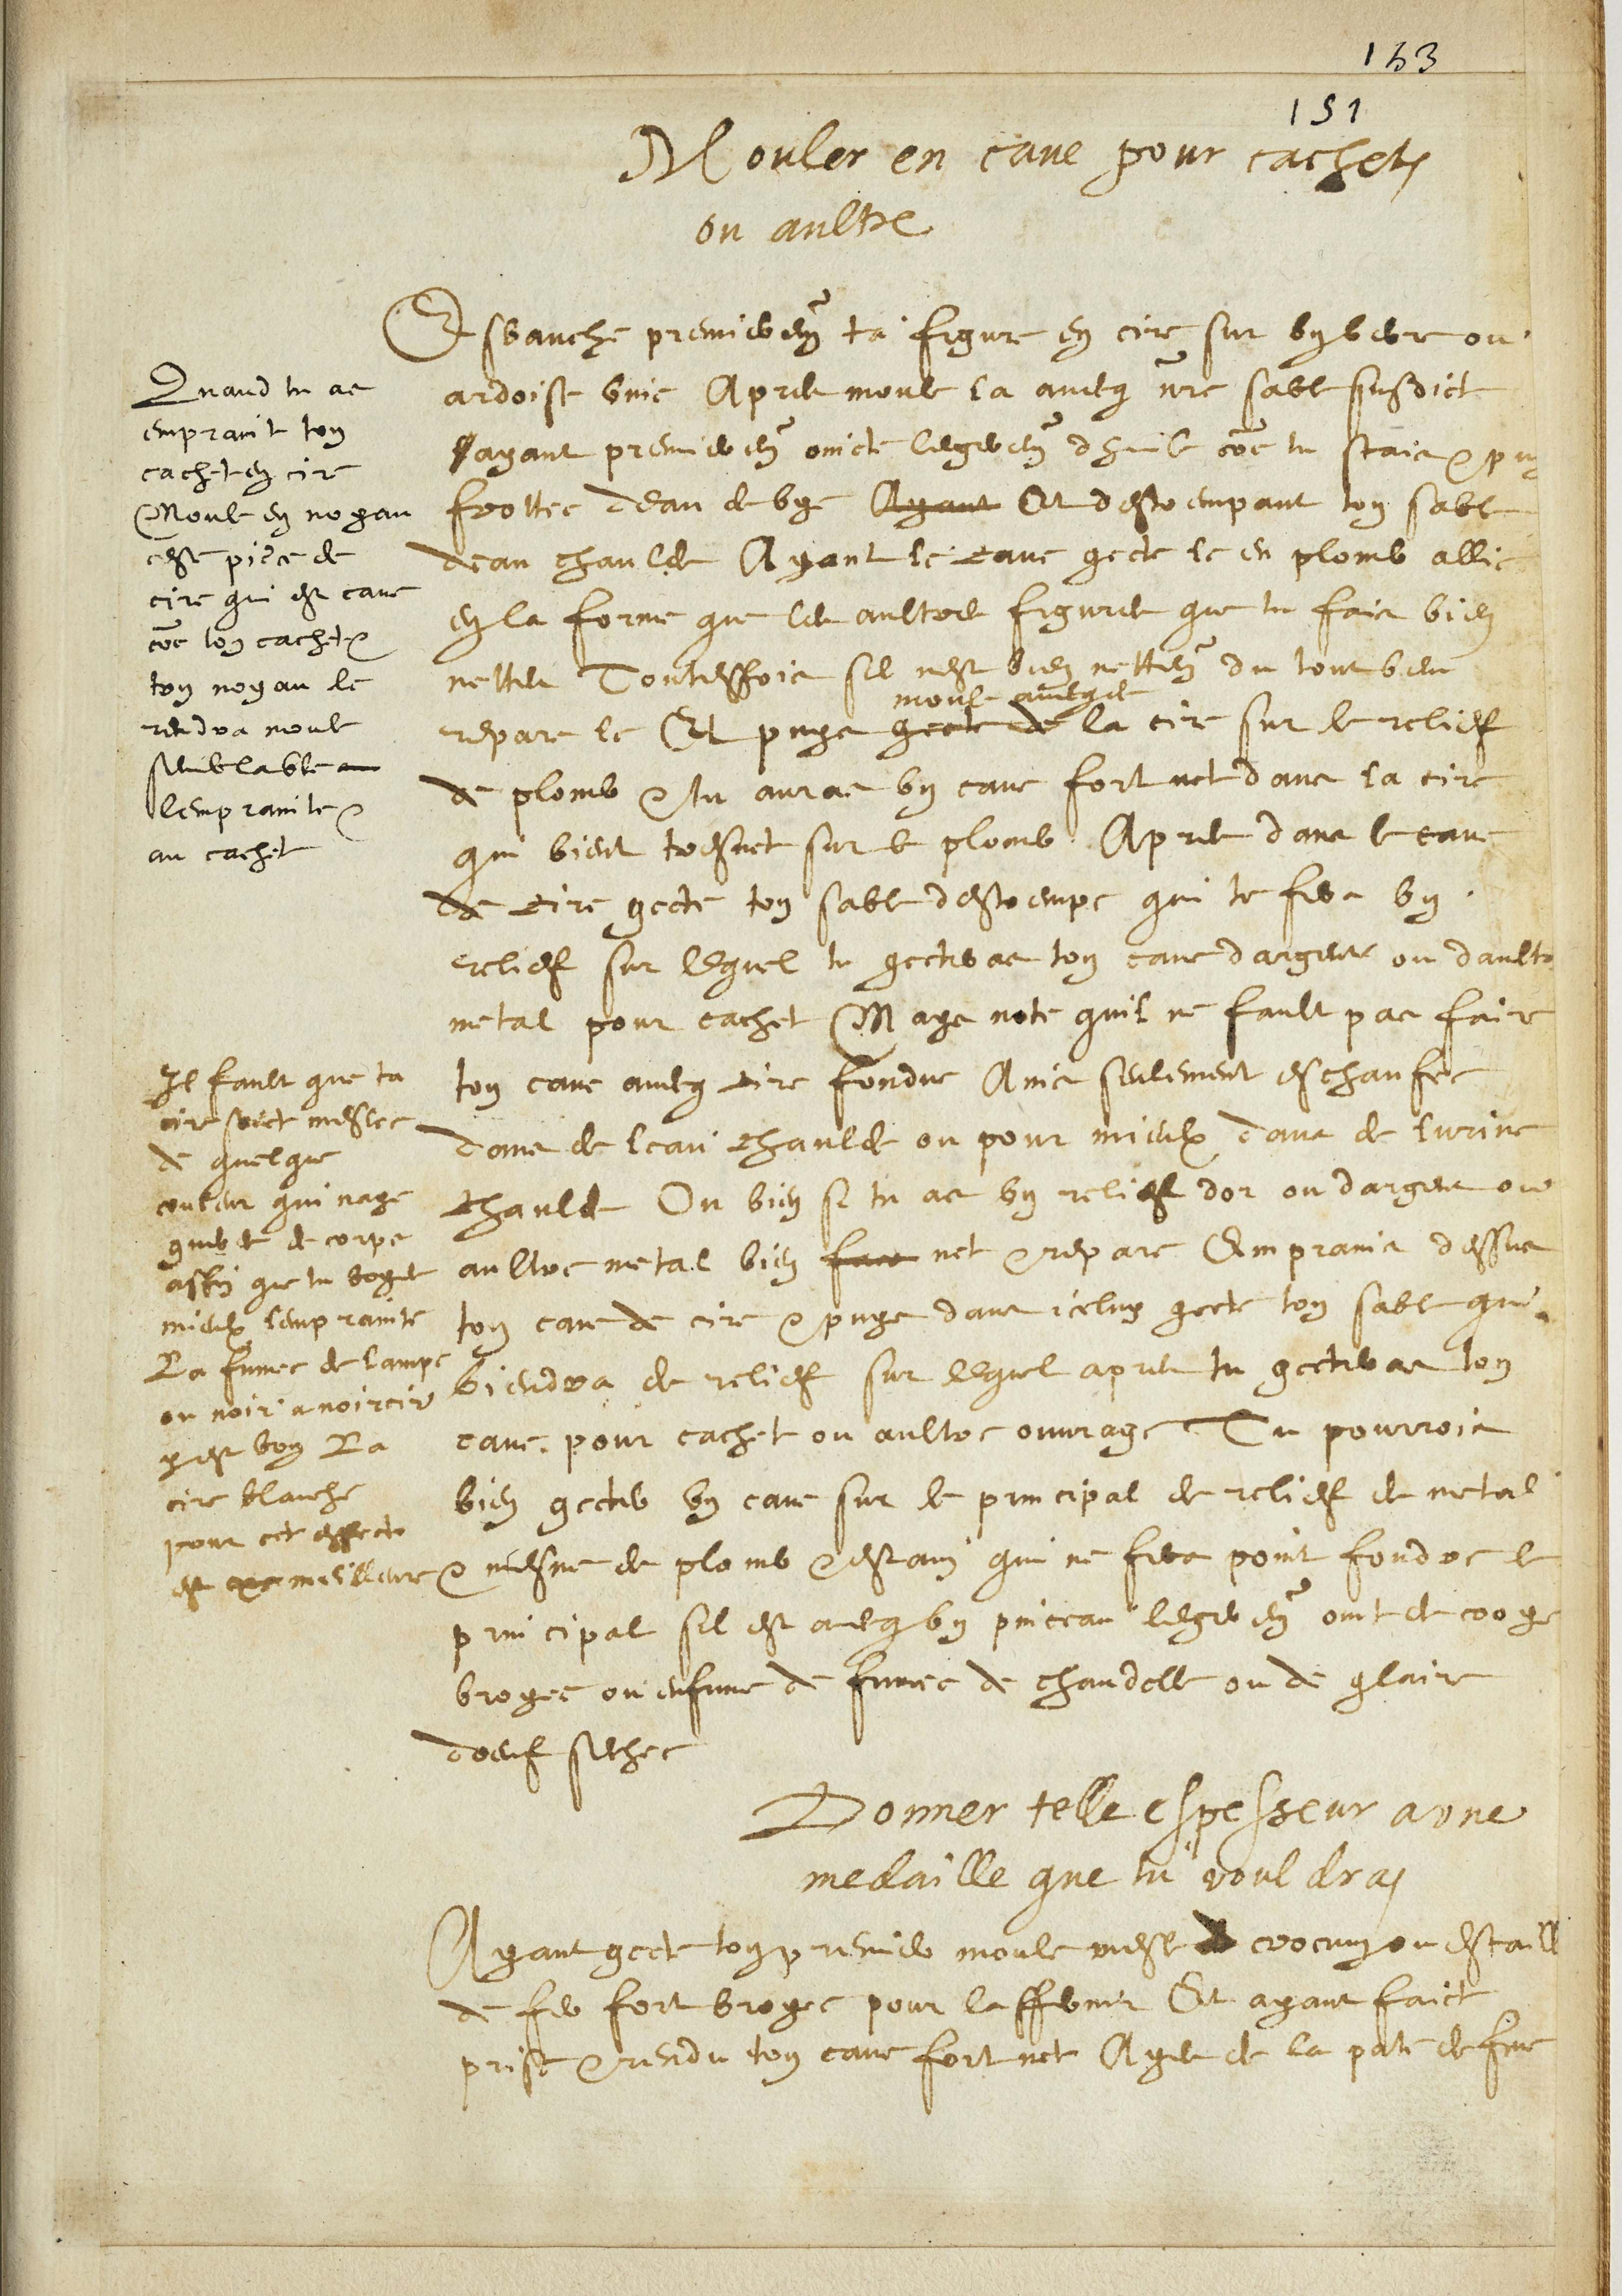 163
151
Mouler en cave pour cachets
ou aultre
Esbauche premierem̃ ta figure en cire sur un verre ou
ardoise unie Apres moule la aveq nr̃e sable susdict
layant premierem̃ oincte legerem̃ dhuile cõe tu scais & puys
frottee deau de vye Ayant Et destrempant ton sable
deau chaulde Ayant le cave gecte le en plomb allie
en la forme que les aultres figures que tu fais bien
nettes Toutesfois sil nest bien nettem̃ du tout venu
moule aveq de
repare le Et puys gecte de la cire sur le relief
de plomb & tu auras un cave fort net dans la cire
qui vient tresnet sur le plomb Apres dans le cave
de cire gecte ton sable destrempe qui te fera un
relief sur lequel tu gecteras ton cave dargent ou daultre
metal pour cachet Mays note quil ne fault pas faire
ton cave aveq cire fondue Ains seulement eschaufee
dans de leau chaulde ou pour mieulx dans de lurine
chaulde Ou bien si tu as un relief dor ou dargent ou
aultre metal bien net & repare Emprains dessus
ton cave de cire & puys dans icelluy gecte ton sable qui
viendra de relief sur lequel apres tu gecteras ton
cave pour cachet ou aultre ouvrage Tu pourrois
bien gecter un cave sur le principal de relief de metal
& mesme de plomb & estain qui ne fera point fondre le
principal sil est aveq un pinceau legerem̃ oint de croye
broyee ou enfume de fumee de chandelle ou de glaire
doeuf sechee
Quand tu as
emprainct ton
cachet en cire
Moule en noyau
ceste piece de
cire qui est cave
cõe ton cachet &
ton noyau le
rendra moule
semblable au
lemprainte &
au cachet
Il fault que ta
cire soict meslee
de quelque
couleur qui naye
gueres de corps
affin que tu voyes
mieulx lemprainte
La fumee de lampe
ou noir a noircir
y est bon La
cire blanche
pour cet effect
est meilleure
Donner telle espesseur a une
medaille que tu vouldras
Ayant gecte ton premier moule mesle de crocum ou escaille
de fer fort broyee pour laffermir Et ayant faict
prise & rendu ton cave fort net Ayes de la paste de fine